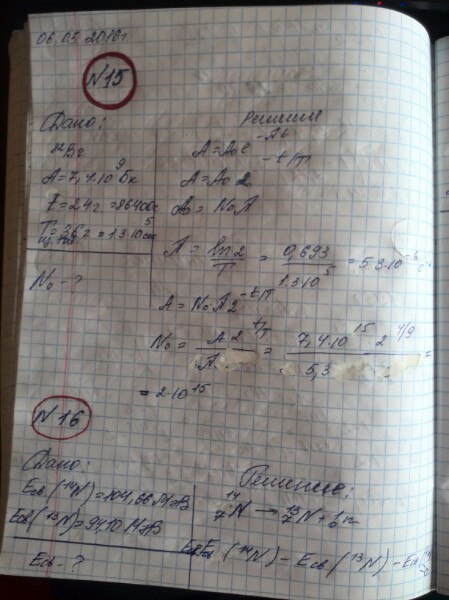 06.05.2016г.
№15
Дано:
⁸²Br
A=7,4·10⁹ Бк
t=24г.=86400с
T=36г=1.3·10⁵сек
N₀-?
Решение
A=A₀e^-λt
A=A₀2^-t/T
A₀=N₀λ
λ=ln2/T=0,693/1.3·10⁵=5.3·10⁻⁶
A=N₀λ2^-t/T
N₀=A2^t/T/λ=7,4·10¹⁵2/5,3=
=2·10¹⁵
№16
Дано:
Eсв(¹⁴N)=104,66 МэВ
Eсв(¹³N)=94.10 МэВ
Eсв-?
Решение:
¹⁴₇N→¹³₇N+¹₀n
(¹⁴N)-Eсв(¹³N)-Eсв